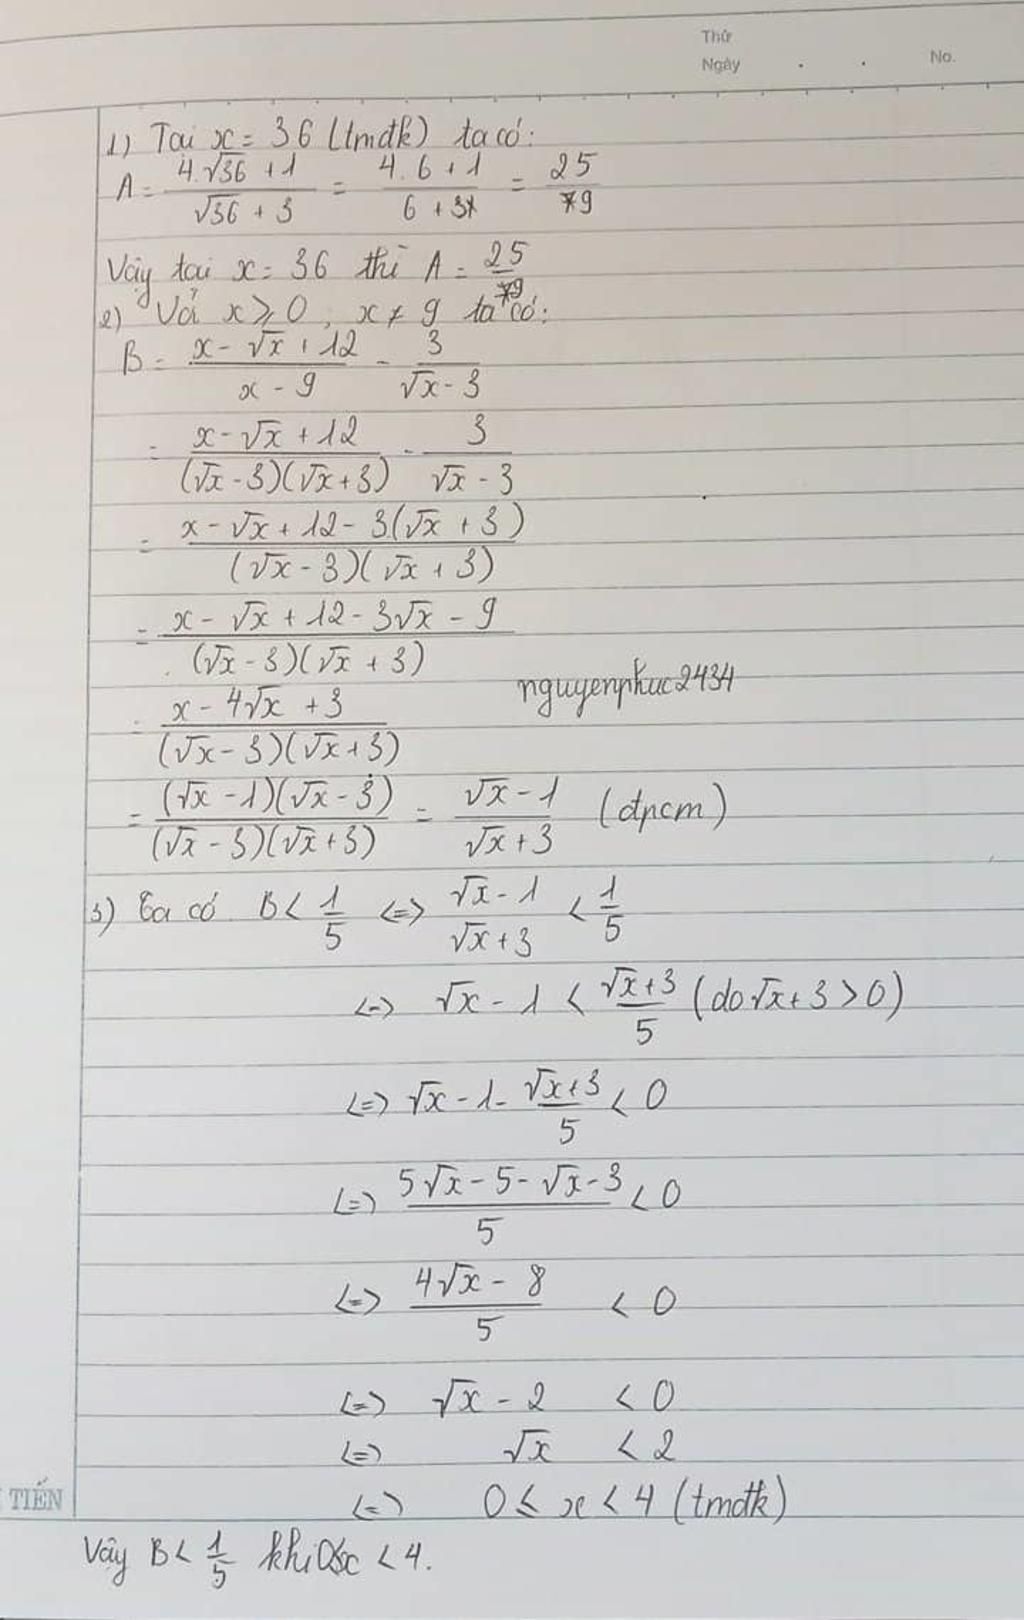 Thứ
Ngày . . No.
1) Tại x = 36 (tmđk) ta có:
A = (4.√36 + 1)/(√36 + 3) = (4.6 + 1)/(6 + 3) = 25/9
Vậy tại x = 36 thì A = 25/9
2) Với x ≥ 0, x ≠ 9 ta có:
B = (x - √x + 12)/(x - 9) - 3/(√x - 3)
= (x - √x + 12)/((√x - 3)(√x + 3)) - 3/(√x - 3)
= (x - √x + 12 - 3(√x + 3))/((√x - 3)(√x + 3))
= (x - √x + 12 - 3√x - 9)/((√x - 3)(√x + 3))
nguyenphuc2434
= (x - 4√x + 3)/((√x - 3)(√x + 3))
= ((√x - 1)(√x - 3))/((√x - 3)(√x + 3)) = (√x - 1)/(√x + 3) (đpcm)
3) Ta có B < 1/5 <=> (√x - 1)/(√x + 3) < 1/5
<=> √x - 1 < (√x + 3)/5 (do √x + 3 > 0)
<=> √x - 1 - (√x + 3)/5 < 0
<=> (5√x - 5 - √x - 3)/5 < 0
<=> (4√x - 8)/5 < 0
<=> √x - 2 < 0
<=> √x < 2
TIẾN
<=> 0 ≤ x < 4 (tmđk)
Vậy B < 1/5 khi 0≤x < 4.